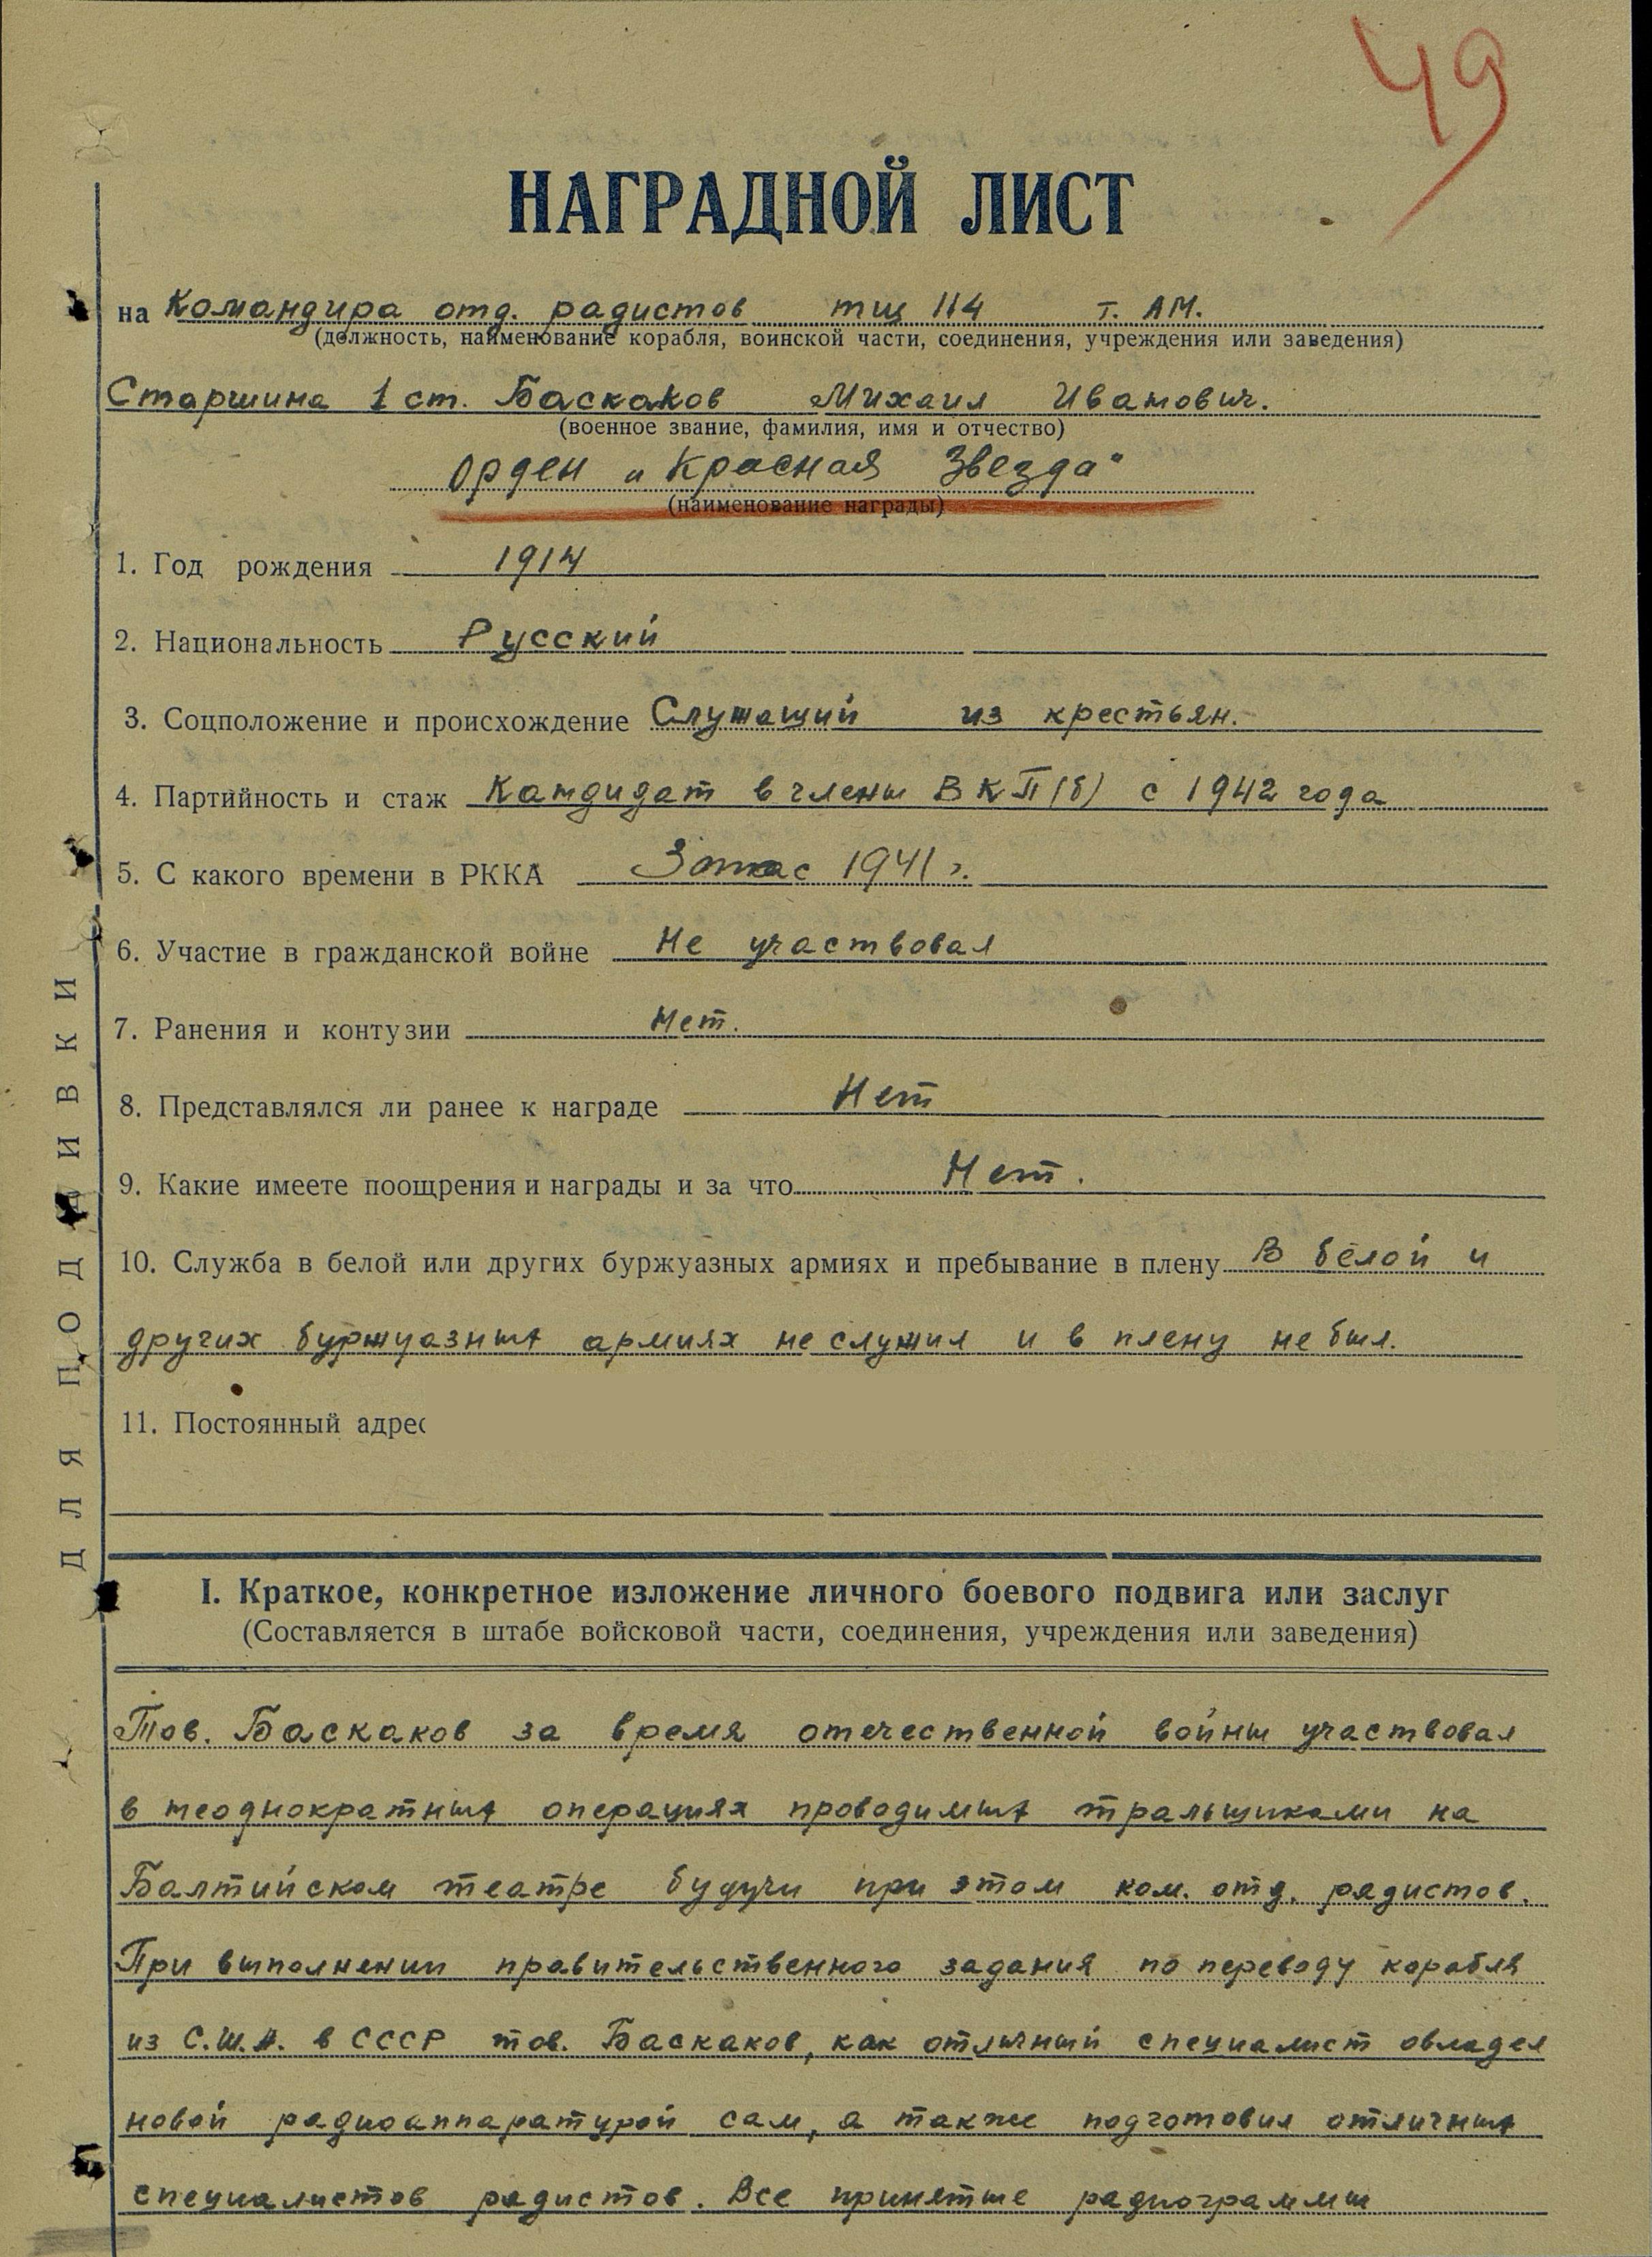 49
НАГРАДНОЙ ЛИСТ
на Командира отд. радистов тщ 114 т. АМ.
(должность, наименование корабля, воинской части, соединения, учреждения или заведения)
Старшина 1 ст. Баскаков Михаил Иванович.
(военное звание, фамилия, имя и отчество)
Орден „Красная Звезда"
(наименование награды)
1. Год рождения 1914
2. Национальность Русский
3. Соцположение и происхождение Служащий из крестьян.
4. Партийность и стаж Кандидат в члены ВКП(б) с 1942 года
5. С какого времени в РККА Запас 1941 г.
6. Участие в гражданской войне Не участвовал
7. Ранения и контузии Нет.
8. Представлялся ли ранее к награде Нет
9. Какие имеете поощрения и награды и за что Нет.
10. Служба в белой или других буржуазных армиях и пребывание в плену В белой и
других буржуазных армиях не служил и в плену не был.
11. Постоянный адрес
ДЛЯ ПОДШИВКИ
I. Краткое, конкретное изложение личного боевого подвига или заслуг
(Составляется в штабе войсковой части, соединения, учреждения или заведения)
Тов. Баскаков за время отечественной войны участвовал
в неоднократных операциях проводимых тральщиками на
Балтийском театре будучи при этом ком. отд. радистов.
При выполнении правительственного задания по переводу корабля
из С.Ш.А. в СССР тов. Баскаков, как отличный специалист овладел
новой радиоаппаратурой сам, а также подготовил отличных
специалистов радистов. Все принятые радиограммы